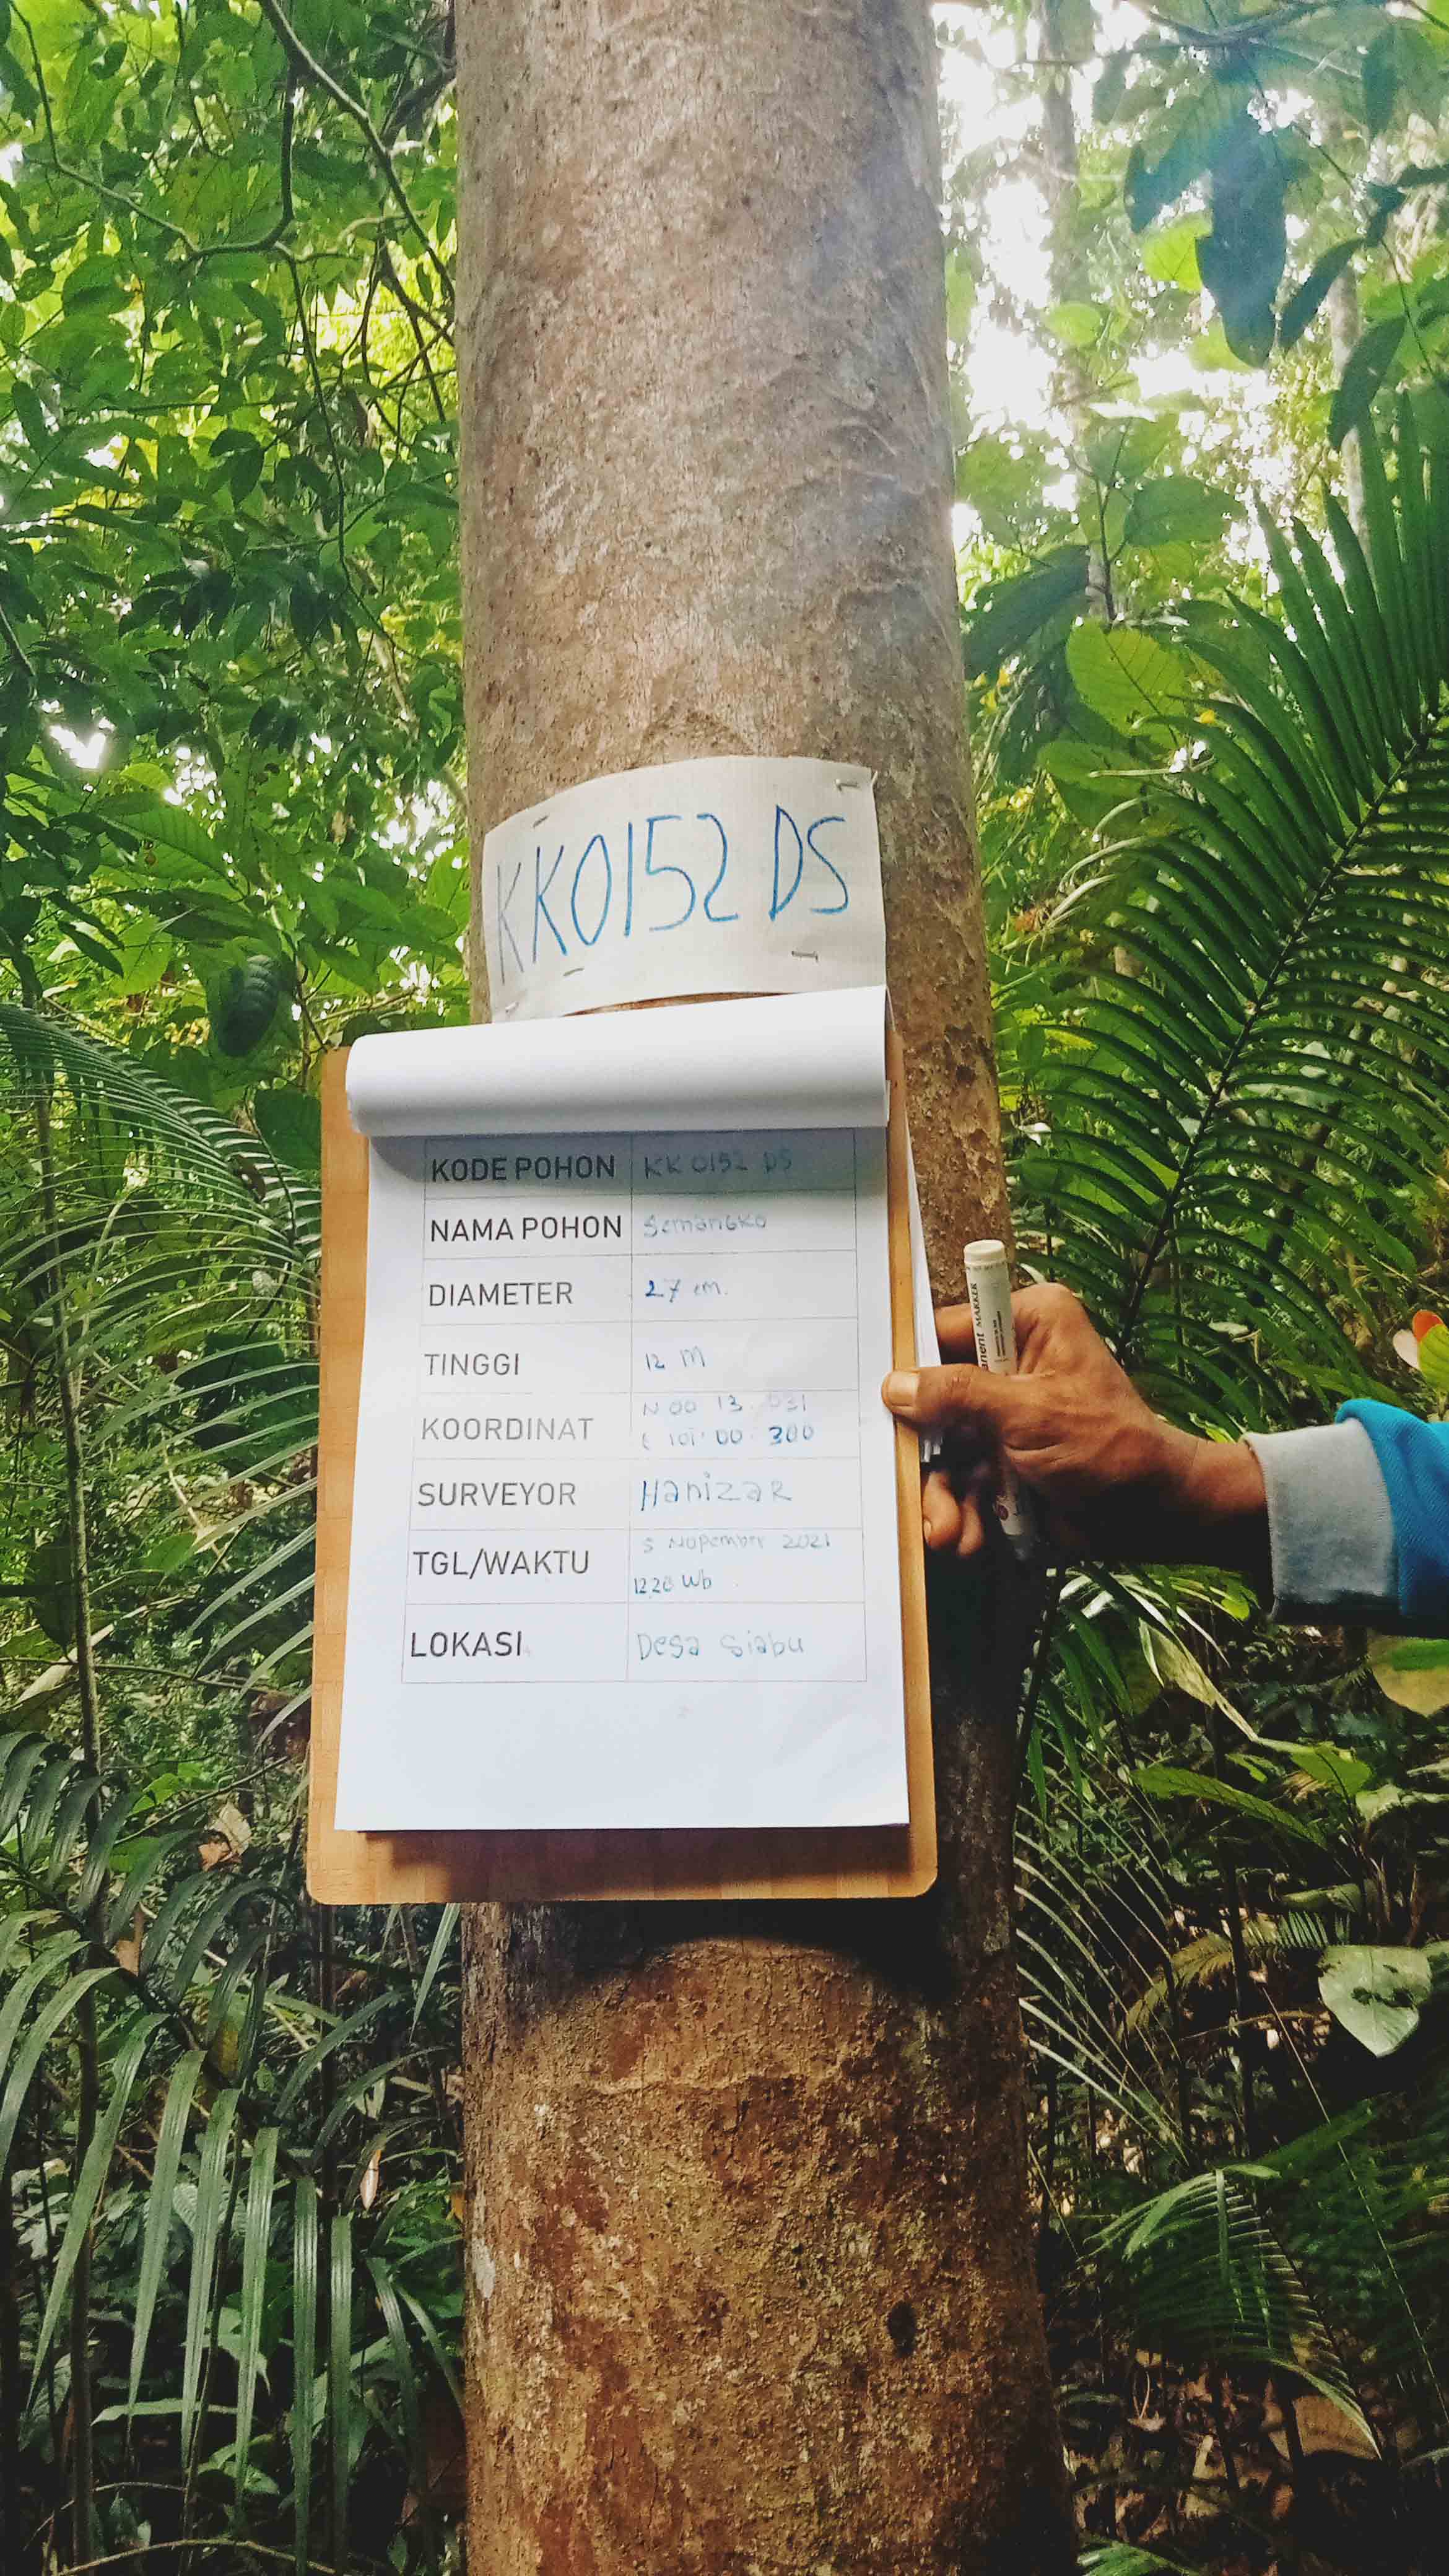 KK0152 DS
KODE POHON KK 0152 DS
NAMA POHON Semangko
DIAMETER 27 cm.
TINGGI 12 M
KOORDINAT N 00 13. 031
E 101' 00. 300
SURVEYOR HanizaR
TGL/WAKTU 5 Nopember 2021
12.20 Wb
LOKASI Desa Siabu
MARKER